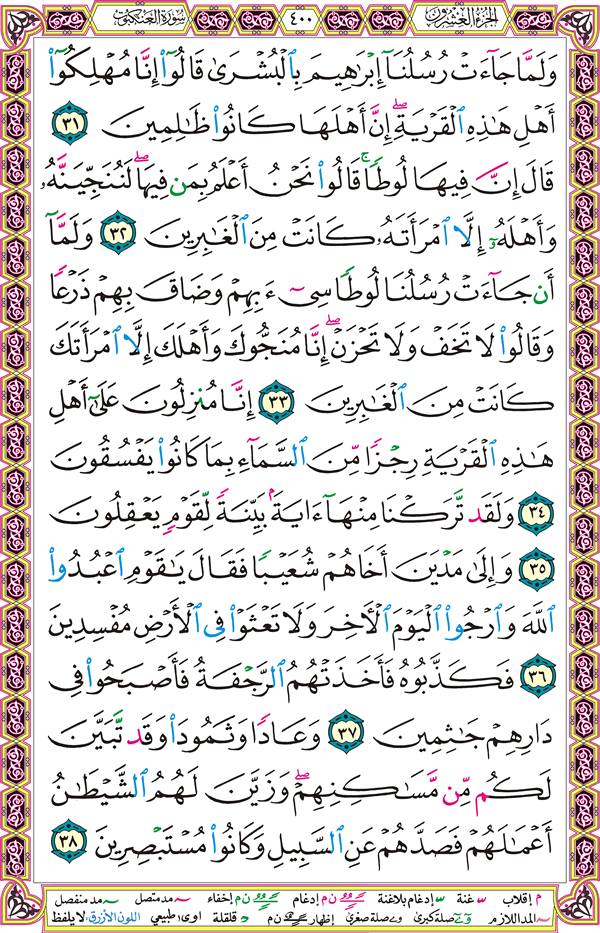 الجزء العشرون
٤٠٠
سورة العنكبوت
وَلَمَّا جَآءَتۡ رُسُلُنَآ إِبۡرَٰهِيمَ بِٱلۡبُشۡرَىٰ قَالُوٓاْ إِنَّا مُهۡلِكُوٓاْ
أَهۡلِ هَٰذِهِ ٱلۡقَرۡيَةِۖ إِنَّ أَهۡلَهَا كَانُواْ ظَٰلِمِينَ ٣١
قَالَ إِنَّ فِيهَا لُوطٗاۚ قَالُواْ نَحۡنُ أَعۡلَمُ بِمَن فِيهَاۖ لَنُنَجِّيَنَّهُۥ
وَأَهۡلَهُۥٓ إِلَّا ٱمۡرَأَتَهُۥ كَانَتۡ مِنَ ٱلۡغَٰبِرِينَ ٣٢ وَلَمَّآ
أَن جَآءَتۡ رُسُلُنَا لُوطٗا سِيٓءَ بِهِمۡ وَضَاقَ بِهِمۡ ذَرۡعٗا
وَقَالُواْ لَا تَخَفۡ وَلَا تَحۡزَنۡ إِنَّا مُنَجُّوكَ وَأَهۡلَكَ إِلَّا ٱمۡرَأَتَكَ
كَانَتۡ مِنَ ٱلۡغَٰبِرِينَ ٣٣ إِنَّا مُنزِلُونَ عَلَىٰٓ أَهۡلِ
هَٰذِهِ ٱلۡقَرۡيَةِ رِجۡزٗا مِّنَ ٱلسَّمَآءِ بِمَا كَانُواْ يَفۡسُقُونَ
٣٤ وَلَقَد تَّرَكۡنَا مِنۡهَآ ءَايَةَۢ بَيِّنَةٗ لِّقَوۡمٖ يَعۡقِلُونَ
٣٥ وَإِلَىٰ مَدۡيَنَ أَخَاهُمۡ شُعَيۡبٗا فَقَالَ يَٰقَوۡمِ ٱعۡبُدُواْ
ٱللَّهَ وَٱرۡجُواْ ٱلۡيَوۡمَ ٱلۡأٓخِرَ وَلَا تَعۡثَوۡاْ فِي ٱلۡأَرۡضِ مُفۡسِدِينَ
٣٦ فَكَذَّبُوهُ فَأَخَذَتۡهُمُ ٱلرَّجۡفَةُ فَأَصۡبَحُواْ فِي
دَارِهِمۡ جَٰثِمِينَ ٣٧ وَعَادٗا وَثَمُودَاْ وَقَد تَّبَيَّنَ
لَكُم مِّن مَّسَٰكِنِهِمۡۖ وَزَيَّنَ لَهُمُ ٱلشَّيۡطَٰنُ
أَعۡمَٰلَهُمۡ فَصَدَّهُمۡ عَنِ ٱلسَّبِيلِ وَكَانُواْ مُسۡتَبۡصِرِينَ ٣٨
م إقلاب س غنة س إدغام بلاغنة ن م إدغام ن م إخفاء ~ مد متصل ~ مد منفصل
~ المد اللازم صلة كبرى صلة صغرى إظهار ن م قلقلة اوى طبيعي اللون الأزرق: لا يلفظ